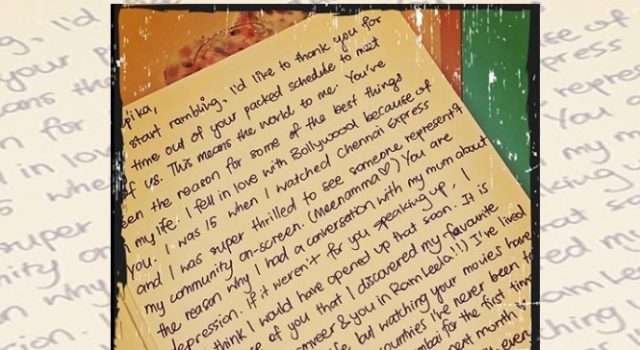 pika,
start rambling, I'd like to thank you for
time out of your packed schedule to meet
of us. This means the world to me. You've
een the reason for some of the best things
n my life. I fell in love with Bollywood because of
you. I was 15 when I watched Chennai Express
and I was super thrilled to see someone representing
my community on-screen. (Meenamma♡) You are
the reason why I had a conversation with my mum about
depression. If it weren't for you speaking up, I
think I would have opened up that soon. It is
se of you that I discovered my favourite
nveer & you in Ram Leela!!!) I've lived
fe, but watching your movies have
countries I've never been to
mbai for the first time
next month
even